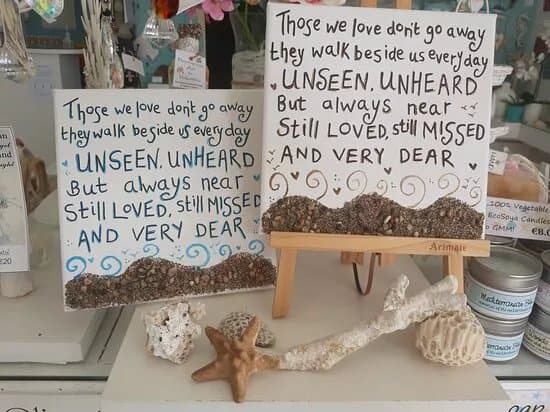 Those we love don't go away
they walk beside us every day
UNSEEN, UNHEARD
But always near
Still LOVED, still MISSED
AND VERY DEAR
Those we love don't go away
they walk beside us every day
UNSEEN, UNHEARD
But always near
Still LOVED, still MISSED
AND VERY DEAR
Artmate
100% Vegetable
EcoSoya Candles
GMM!
€8.0
Mediterranean
€20